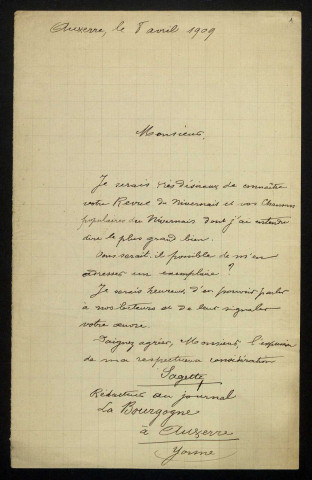 Auxerre, le 8 avril 1909
Monsieur,
Je serais très désireux de connaître
votre Revue du Nivernais et vos Chansons
populaires du Nivernais dont j'ai entendu
dire le plus grand bien.
Vous serait-il possible de m'en
adresser un exemplaire ?
Je serais heureux d'en pouvoir parler
à nos lecteurs et de leur signaler
votre œuvre.
Daignez agréer, Monsieur, l'expression
de ma respectueuse considération
Sagette
Rédacteur au journal
La Bourgogne
à Auxerre
Yonne